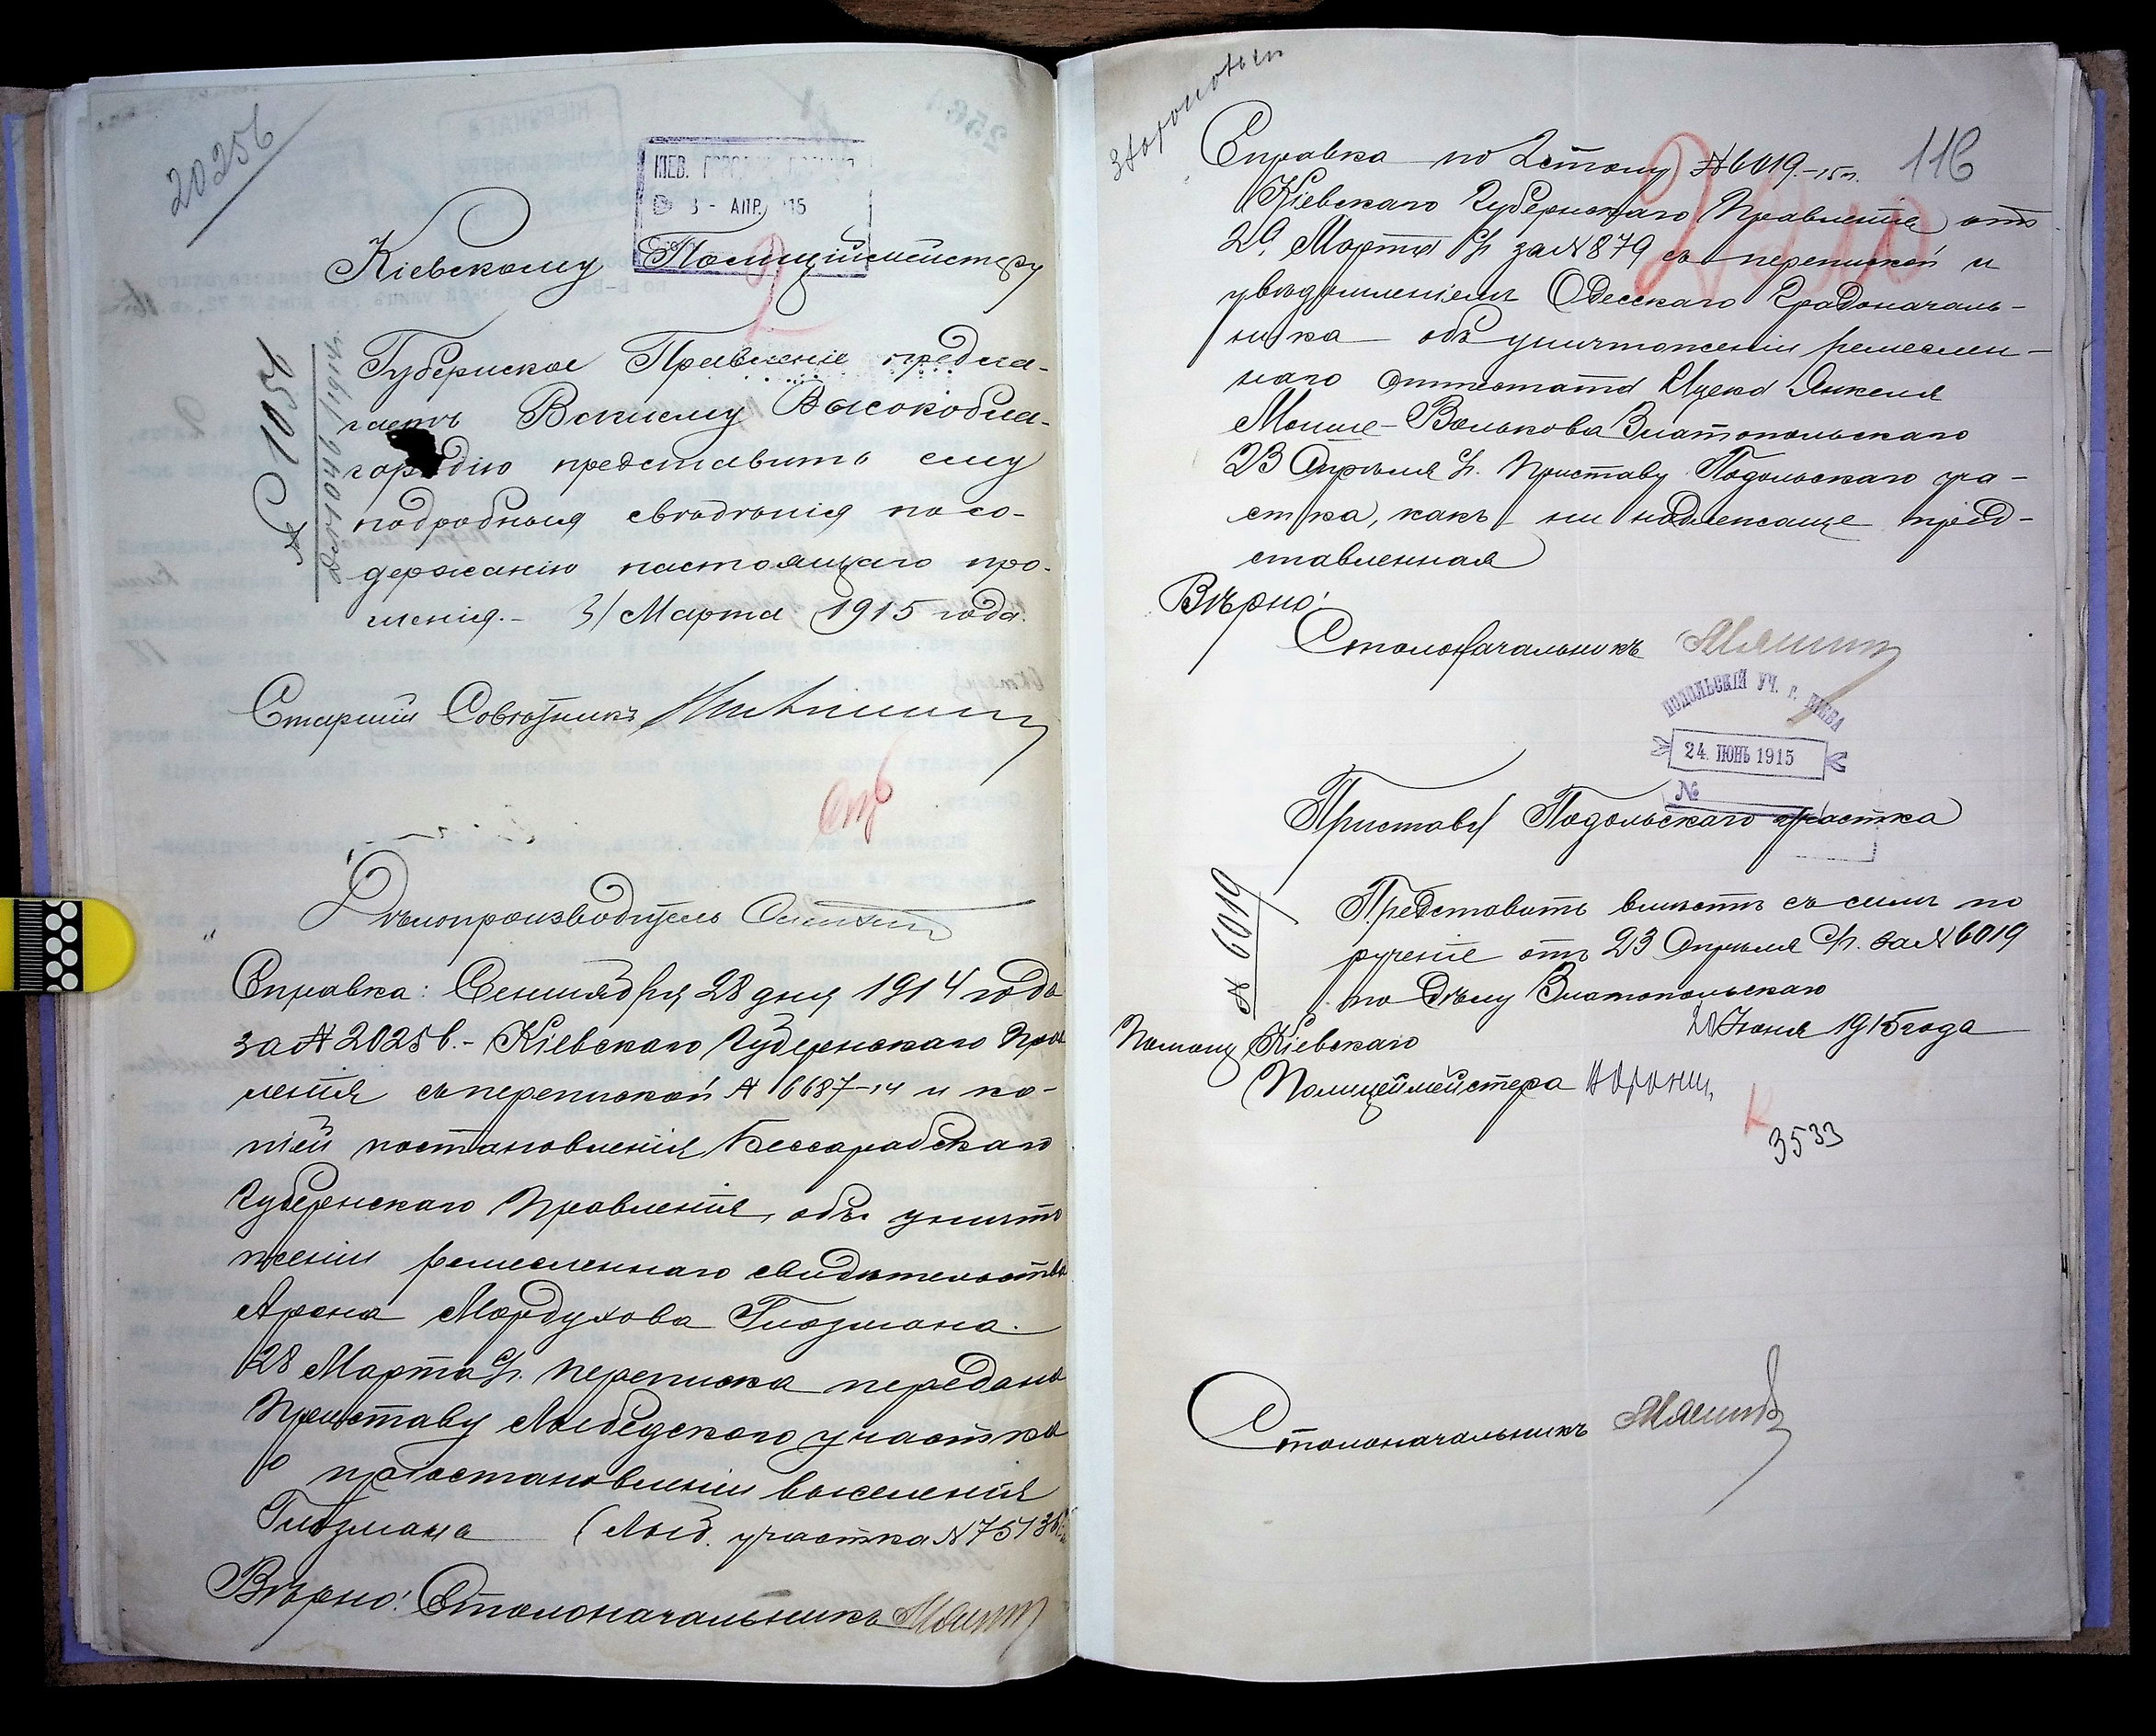 20256
КІЕВ.
3 - АПР. '15
Кіевскому Полиціймейстеру
№ 1056
1914 г.
Губернское Правленіе предла-
гаетъ Вашему Высокобла-
городію представить ему
подробныя свѣдѣнія по со-
держанію настоящаго про-
шенія.- 31 Марта 1915 года.
Старшій Совѣтникъ
Дѣлопроизводитель
Справка: Сентября 28 дня 1914 года
за № 20256.- Кіевскаго Губернскаго Прав
ленія съ перепиской № 16687-14 и ко-
піей постановленія Бессарабскаго
Губернскаго Правленія, объ уничто
женіи ремесленнаго свидѣтельства
Арона Мордухова Глозмана.
28 Марта с/г. переписка передана
Приставу Лыбедскаго участка
о пріостановленіи выселенія
Глозмана (Лыб. участка № 7513
Вѣрно! Столоначальникъ
116
Справка по 2 столу № 6019.-15 г.
Кіевскаго Губернскаго Правленія отъ
29 Марта с/г. за № 879 съ перепиской и
увѣдомленіемъ Одесскаго Градоначаль-
ника объ уничтоженіи ремеслен-
наго аттестата Ицека Янкеля
Мошко-Волькова Златопольскаго
23 Апрѣля с/г. Приставу Подольскаго уча-
стка, какъ не надлежаще пред-
ставленная
Вѣрно!
Столоначальникъ
ПОДОЛЬСКІЙ УЧ. Г. КІЕВА
24. ІЮНЬ 1915
№
Приставу Подольскаго участка
№ 6019
Представить вмѣстѣ съ симъ по
рученіе отъ 23 Апрѣля с/г. за № 6019
по дѣлу Златопольскаго
20 Іюня 1915 года
Помощ. Кіевскаго
Полицеймейстера
3533
Столоначальникъ